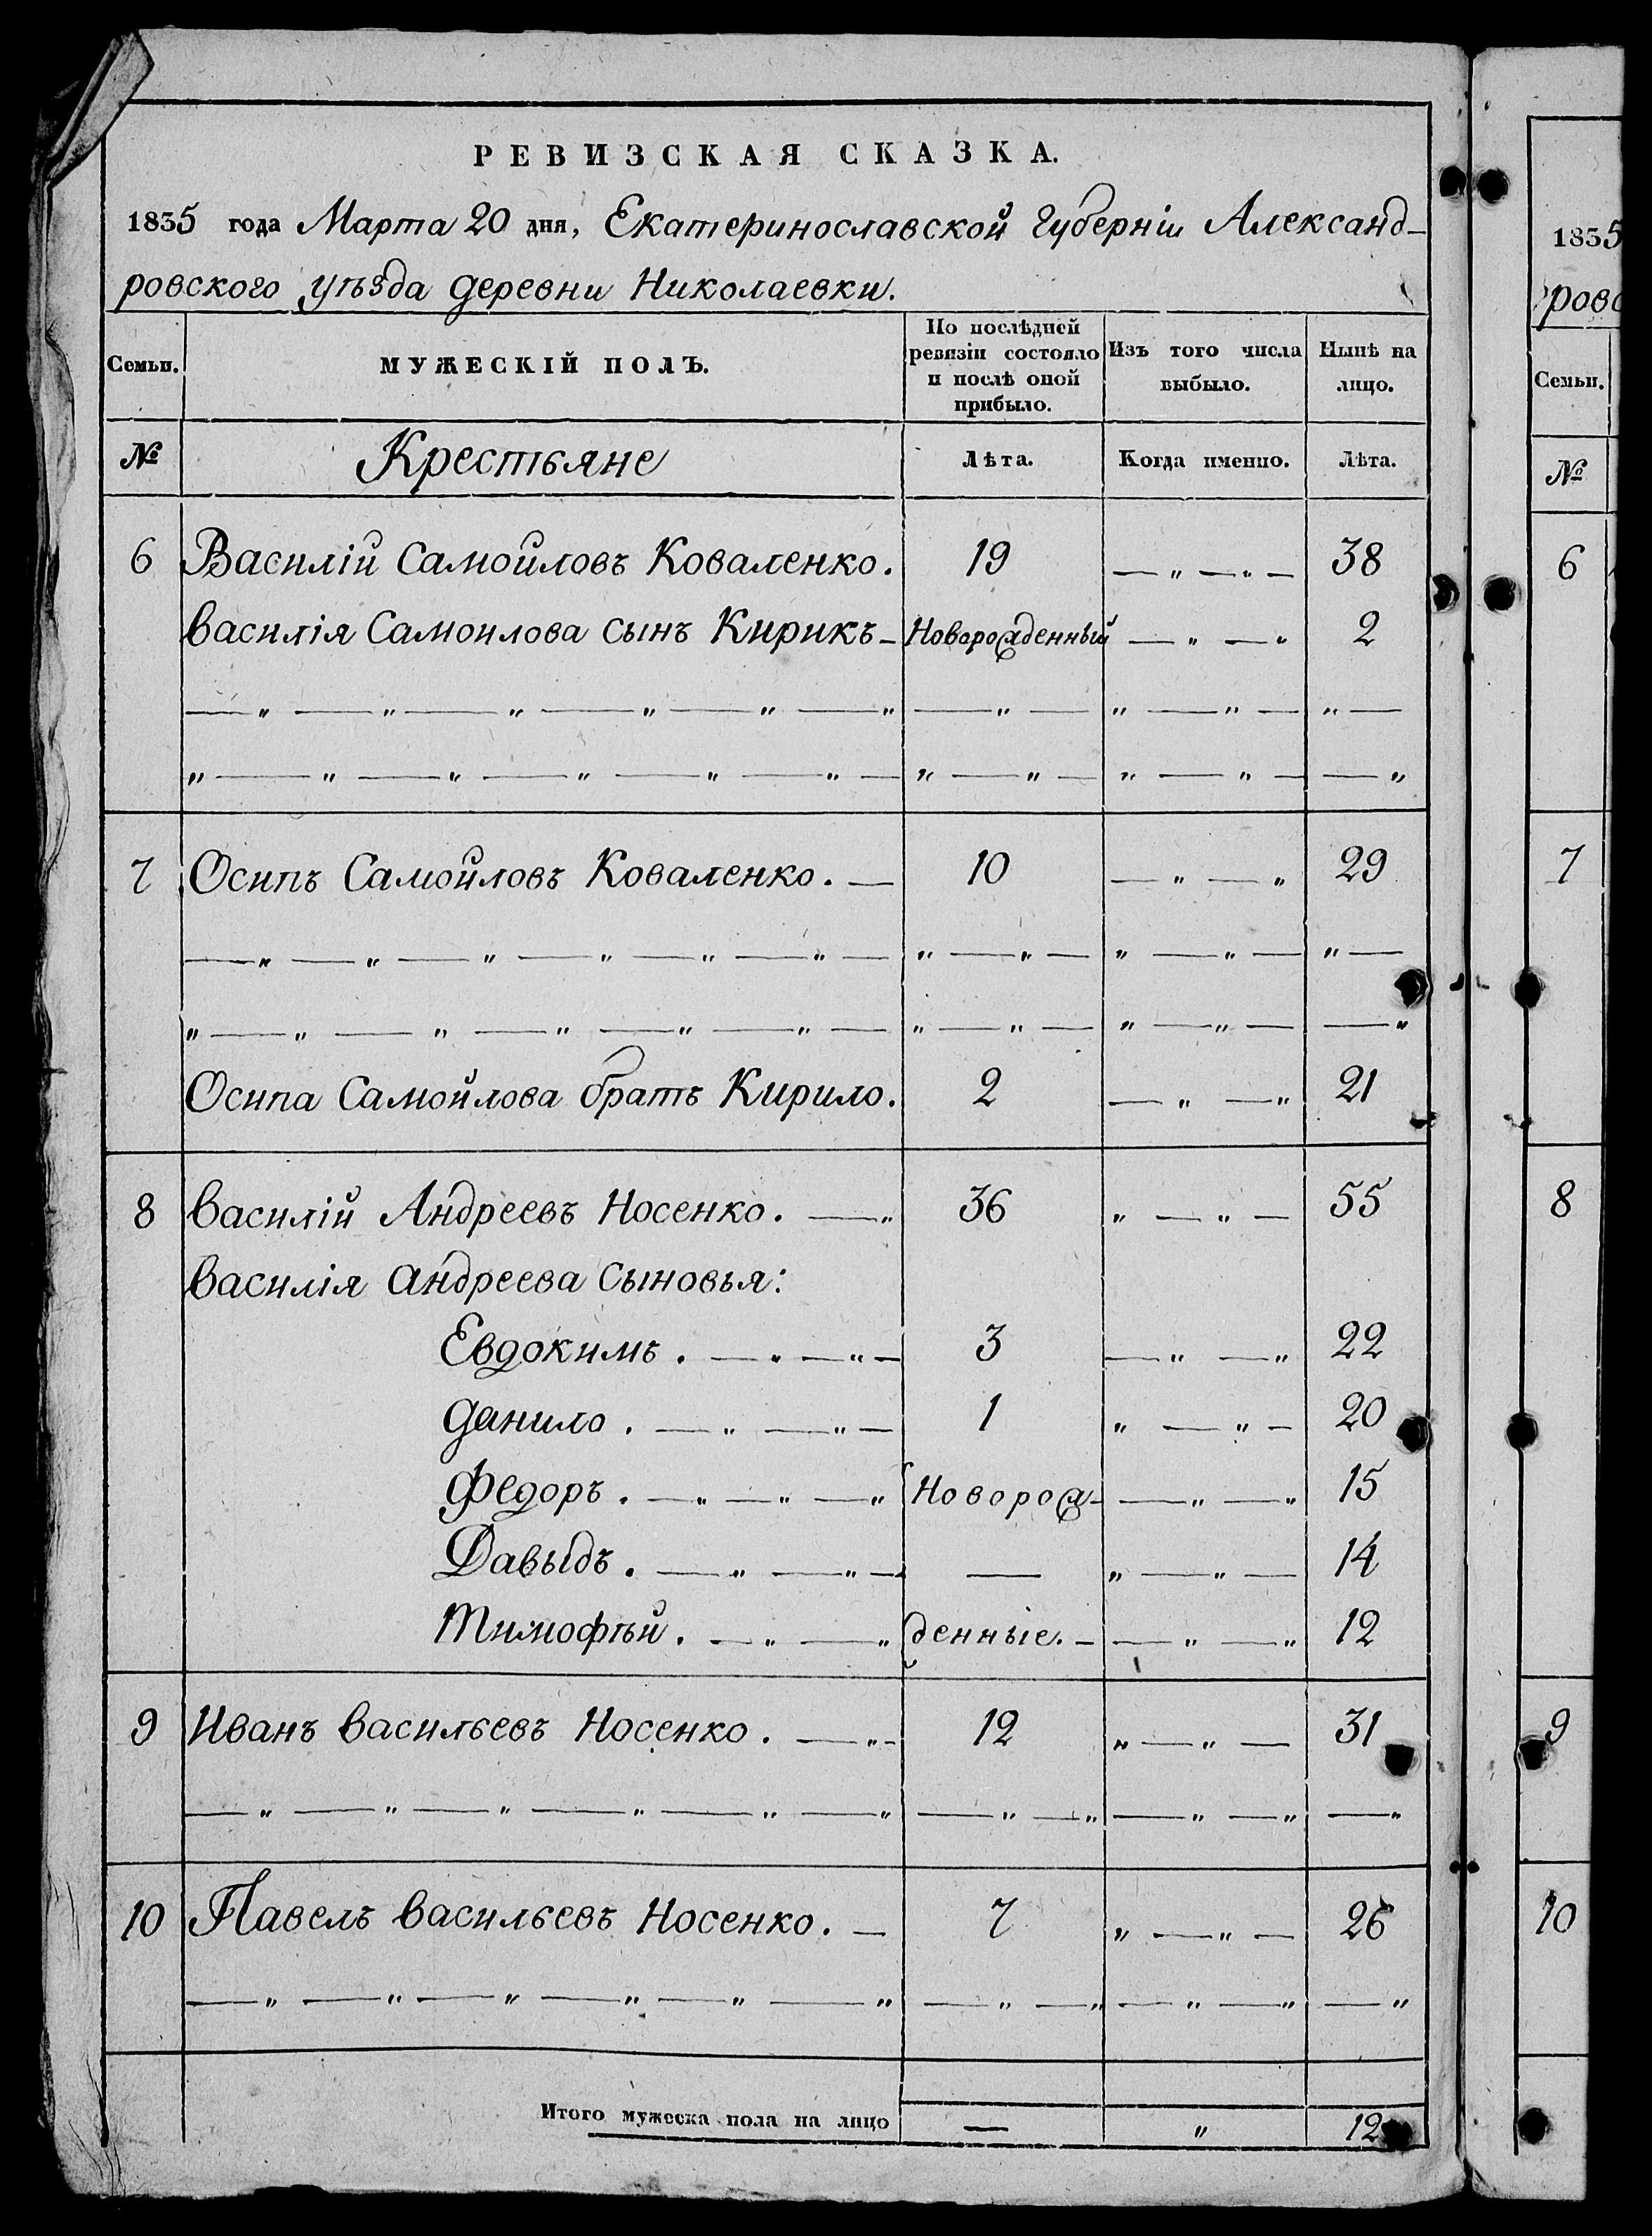 РЕВИЗСКАЯ СКАЗКА.
1835 года Марта 20 дня, Екатеринославской Губерніи Александ-
ровского уѣзда деревни Николаевки.
Семьи. МУЖЕСКІЙ ПОЛЪ. По послѣдней ревизіи состояло и послѣ оной прибыло. Изъ того числа выбыло. Нынѣ на лицо.
№ Крестьяне Лѣта. Когда именно. Лѣта.
6 Василій Самойловъ Коваленко. 19 — " — " — 38
Василія Самоилова сынъ Кирикъ - Новорожденный — " — " 2
— " — " — " — " — " — " — " — " — " — " —
" — " — " — " — " — " — " — " — " — " — — "
7 Осипъ Самойловъ Коваленко. — 10 — " — " 29
— " — " — " — " — " — " — " — " — " — " — " —
" — " — " — " — " — " — " — " — " — " — — "
Осипа Самойлова братъ Кирило. 2 — " — " 21
8 Василій Андреевъ Носенко. — " 36 " — " — 55
Василія Андреева сыновья:
Евдокимъ. — " — " — 3 — " — " 22
Данило. — " — " — 1 " — " — 20
Федоръ. — " — " — " Новорож- — " — " 15
Давыдъ. — " — " — — " — " — 14
Тимофѣй. — " — " денные. - — " — " 12
9 Иванъ Васильевъ Носенко. — " - 12 " — " — 31
— " — " — " — " — " — " — " — " — " — " — "
10 Павелъ Васильевъ Носенко. — 7 " — " — 26
— " — " — " — " — " — " — " — " — " — " — "
Итого мужеска пола на лицо — " 12
1835
рово
Семьи.
№
6
7
8
9
10